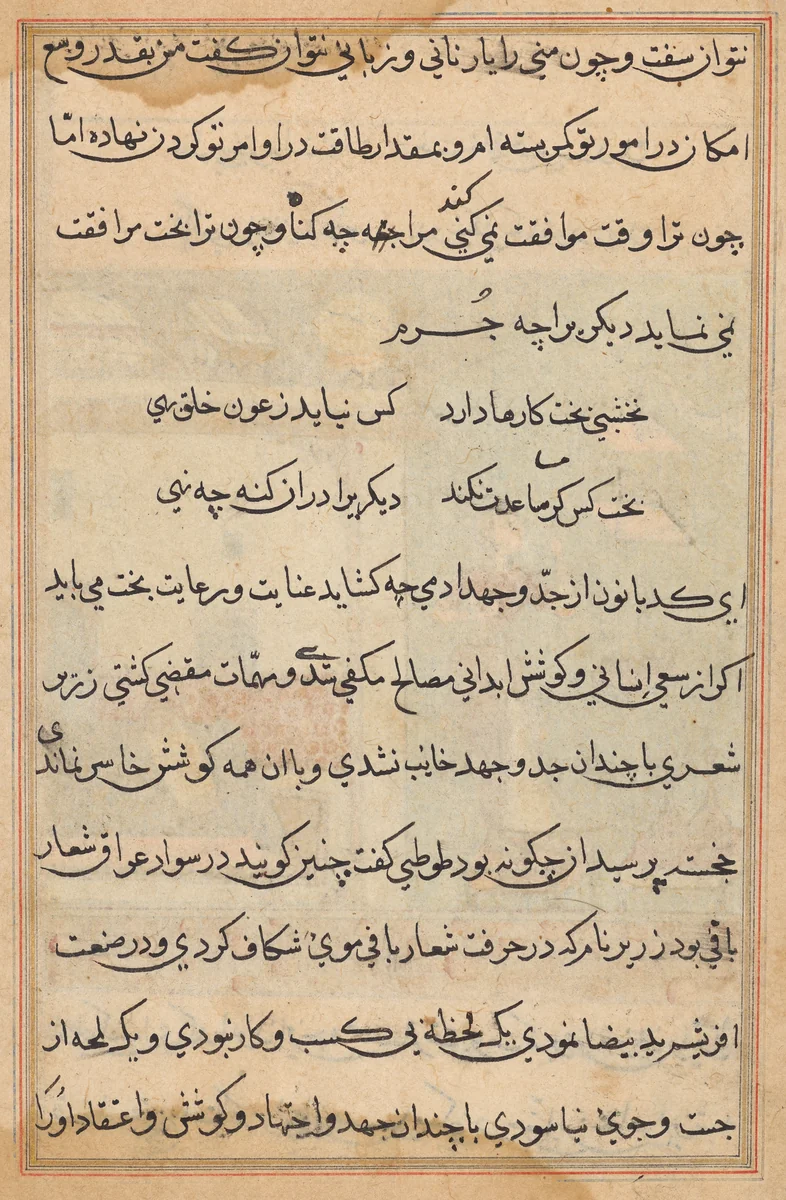 نتوان سفت و چون مني را يار ناني و زباني نتوان كفت من بقدر وسع
امكان در امور تو كمر بسته ام و بمقدار طاقت در اوامر تو كردن نهاده امّا
چون ترا وقت موافقت نمي كني كند مرا چه كناه و چون ترا بخت مرافقت
نمي نمايد ديكريرا چه جُرم
نخشبي بخت كارها دارد كس نيايد ز عون خلق بهي
بخت كس كر مساعدت نكند ديكريرا دران كنه چه نهي
اي كدبانون از جدّ و جهد ادمي چه كشايد عنايت و رعايت بخت مي بايد
اكر از سعي انساني و كوشش ابداني مصالح مكفي شدي و مهمّات مقضي كشتي زرير
شعري با چندان جد و جهد خايب نشدي و با ان همه كوشش خاسر نماندي
خجسته پرسيد ان چكونه بود طوطي كفت چنين كويند در سواد عراق شعار
بافي بود زرير نام كه در حرفت شعار بافي موي شكاف كردي و در صنعت
افريشم يد بيضا نمودي يك لحظه بي كسب و كار نبودي و يك لمحه از
جست و جوي نياسودي با چندان جهد و اجتهاد و كوشش و اعتقاد اورا